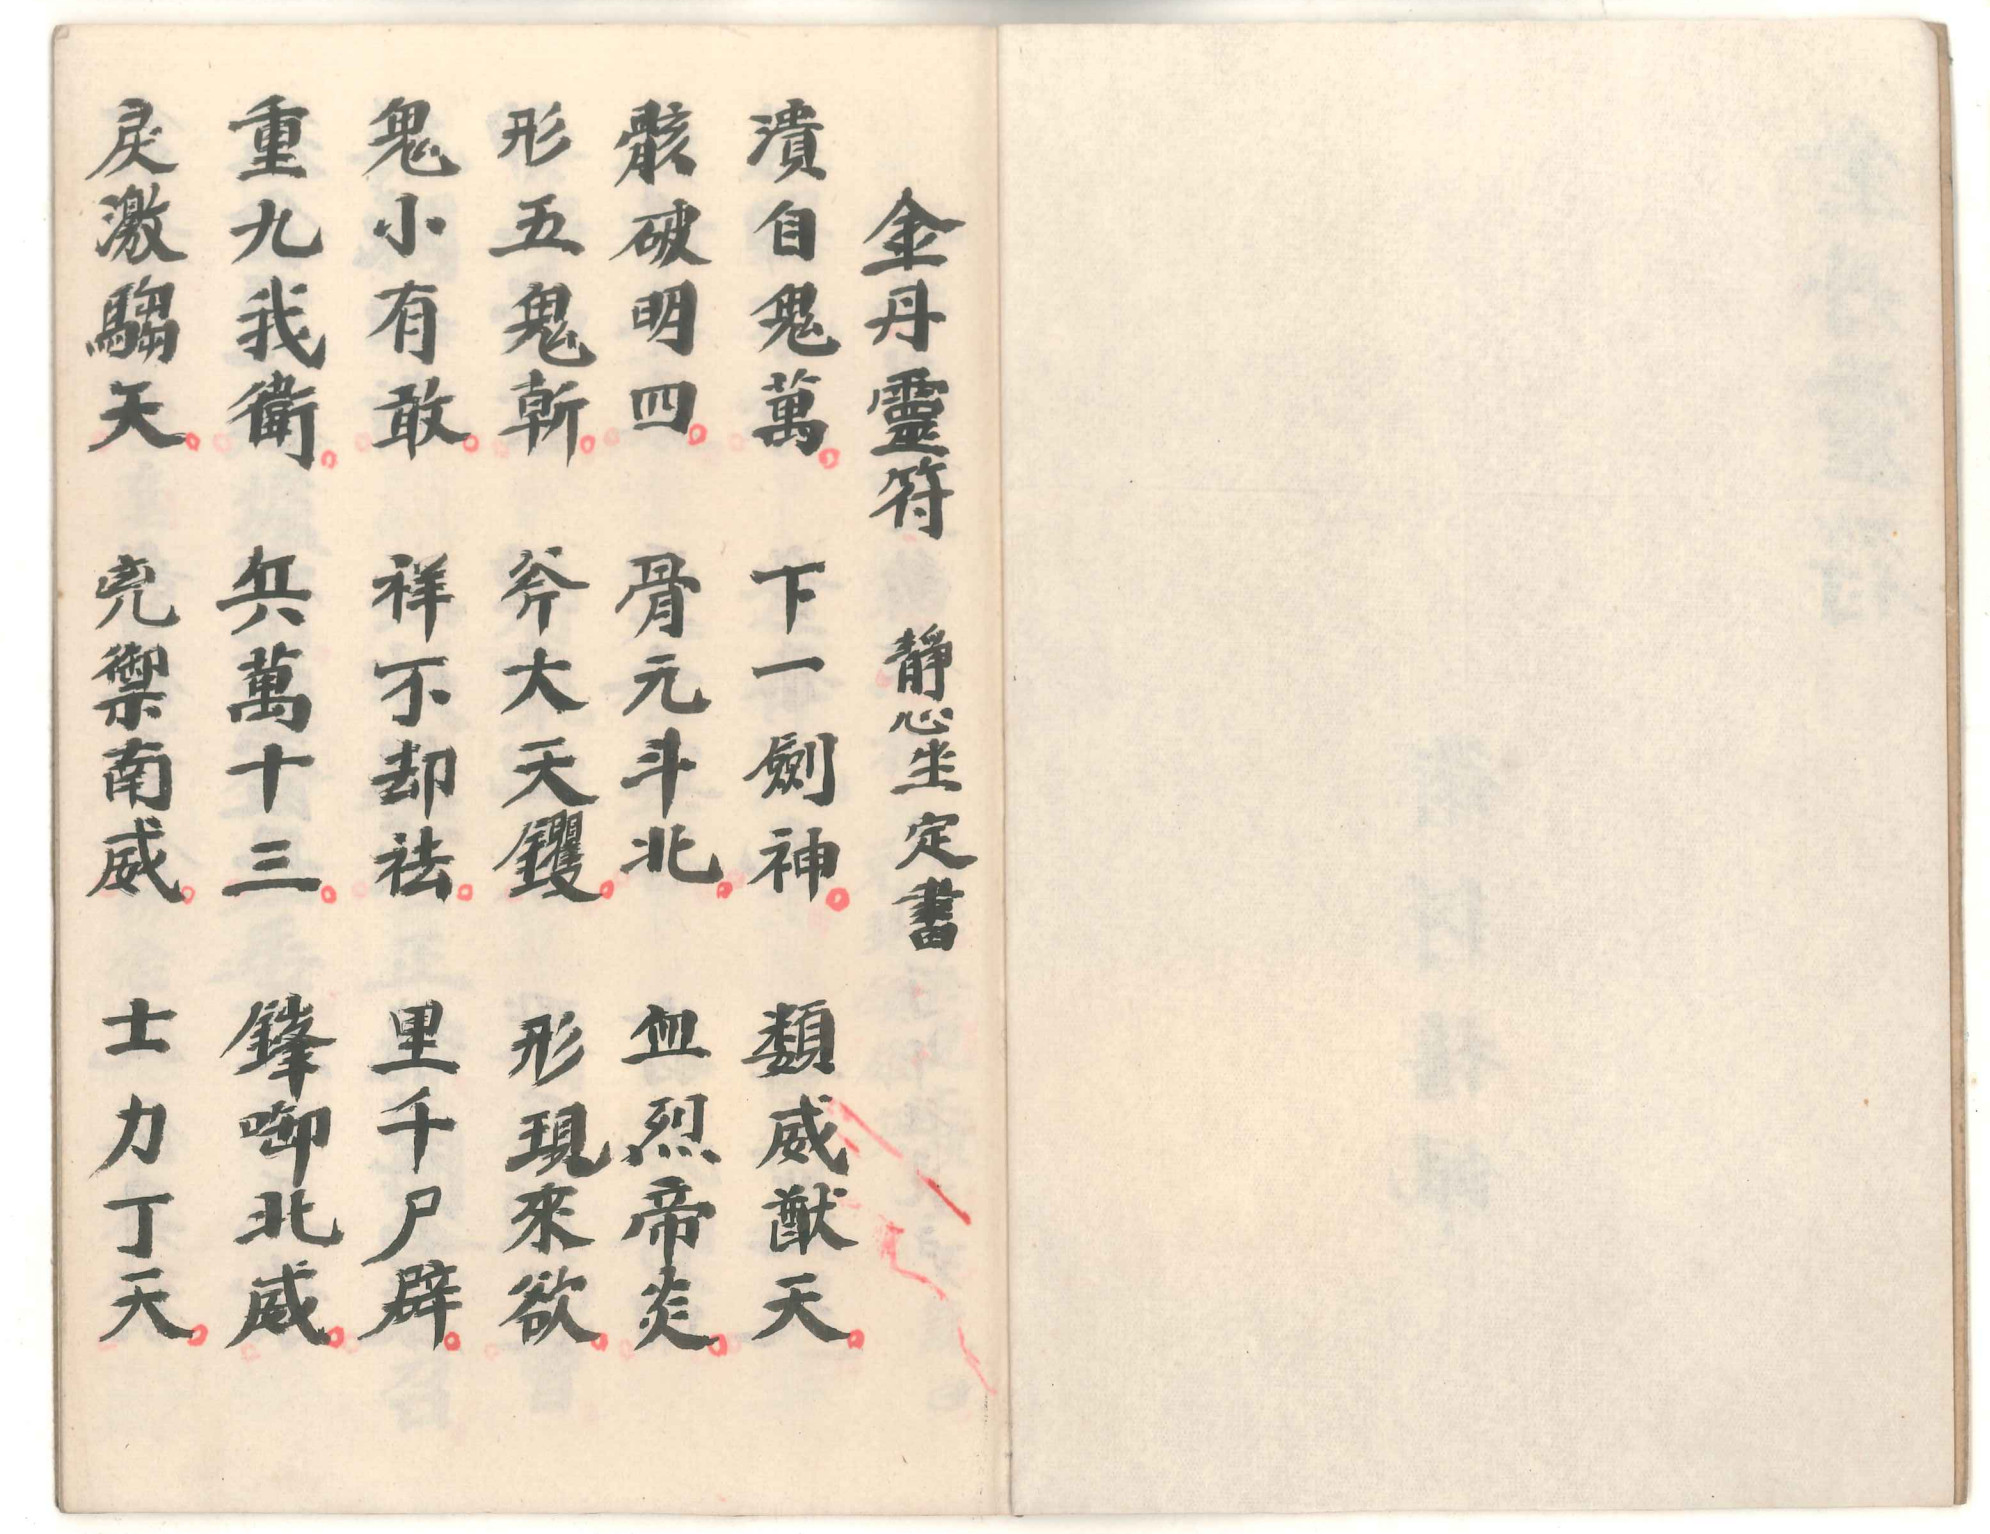 金丹靈符 靜心坐定書
潰自鬼萬。下一劍神。類威猷天。
骸破明四。骨元斗北。血烈帝炎。
形五鬼斬。斧大天钁。形現來欲。
鬼小有敢。祥不却祛。里千尸辟。
重九我衛。兵萬十三。鋒啣北威。
戾激騶天。兜禦南威。士力丁天。